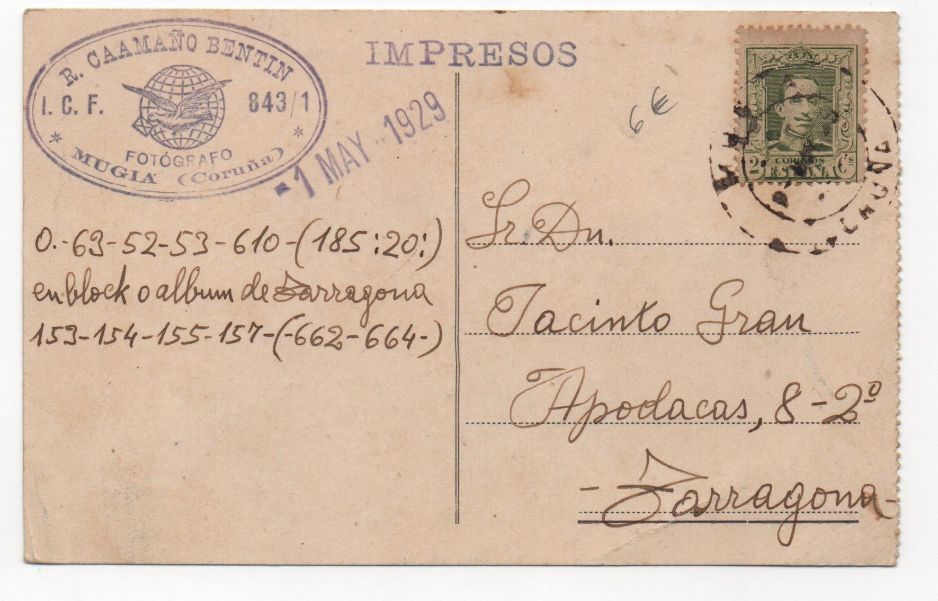 R. CAAMAÑO BENTIN
I. C. F. 843/1
FOTÓGRAFO
* MUGIA (Coruña) *
IMPRESOS
-1 MAY 1929
6€
2 Cs
CORREOS
ESPAÑA
0.-69-52-53-610-(185:20:)
en block o album de Tarragona
153-154-155-157-(-662-664-)
Sr. Dn.
Jacinto Gran
Apodacas, 8-2º
-Tarragona-